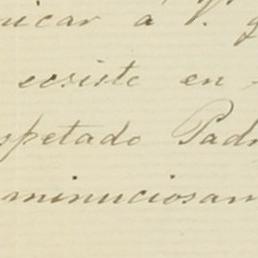 nicar á V. q
ecsiste en
spetado Padr
minuciosam